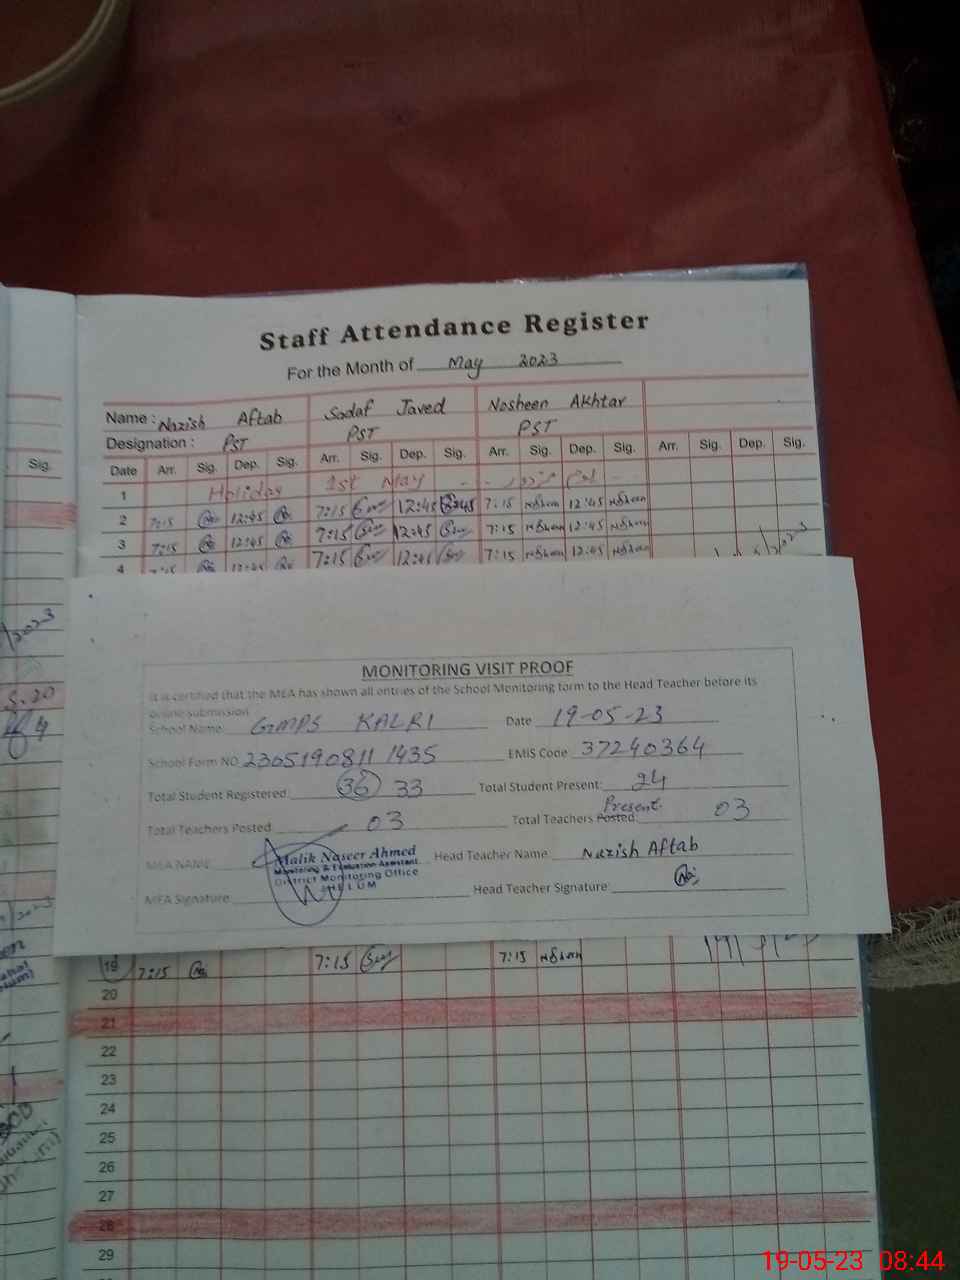 Staff Attendance Register
For the Month of May 2023
Name : Nazish Aftab Sadaf Javed Nosheen Akhtar
Designation : PST PST PST
Sig. Date Arr. Sig. Dep. Sig. Arr. Sig. Dep. Sig. Arr. Sig. Dep. Sig. Arr. Sig. Dep. Sig.
1 Holiday 1st May
2 7:15 12:45 7:15 12:45 7:15 12:45
3 7:15 12:45 7:15 12:45 7:15 12:45
4 7:15 12:45 7:15 12:45 7:15 12:45
MONITORING VISIT PROOF
It is certified that the MEA has shown all entries of the School Monitoring form to the Head Teacher before its
online submission
School Name: GMPS KALRI Date 19-05-23
School Form NO 23051908111435 EMIS Code: 37240364
Total Student Registered: 36 33 Total Student Present: 24
Total Teachers Posted 03 Total Teachers Posted: Present 03
MEA NAME: Malik Naseer Ahmed Head Teacher Name: Nazish Aftab
Monitoring & Evaluation Assistant
District Monitoring Office
JHELUM
MEA Signature: Head Teacher Signature:
19 7:15 7:15 7:15
20
21
22
23
24
25
26
27
28
29
19-05-23 08:44